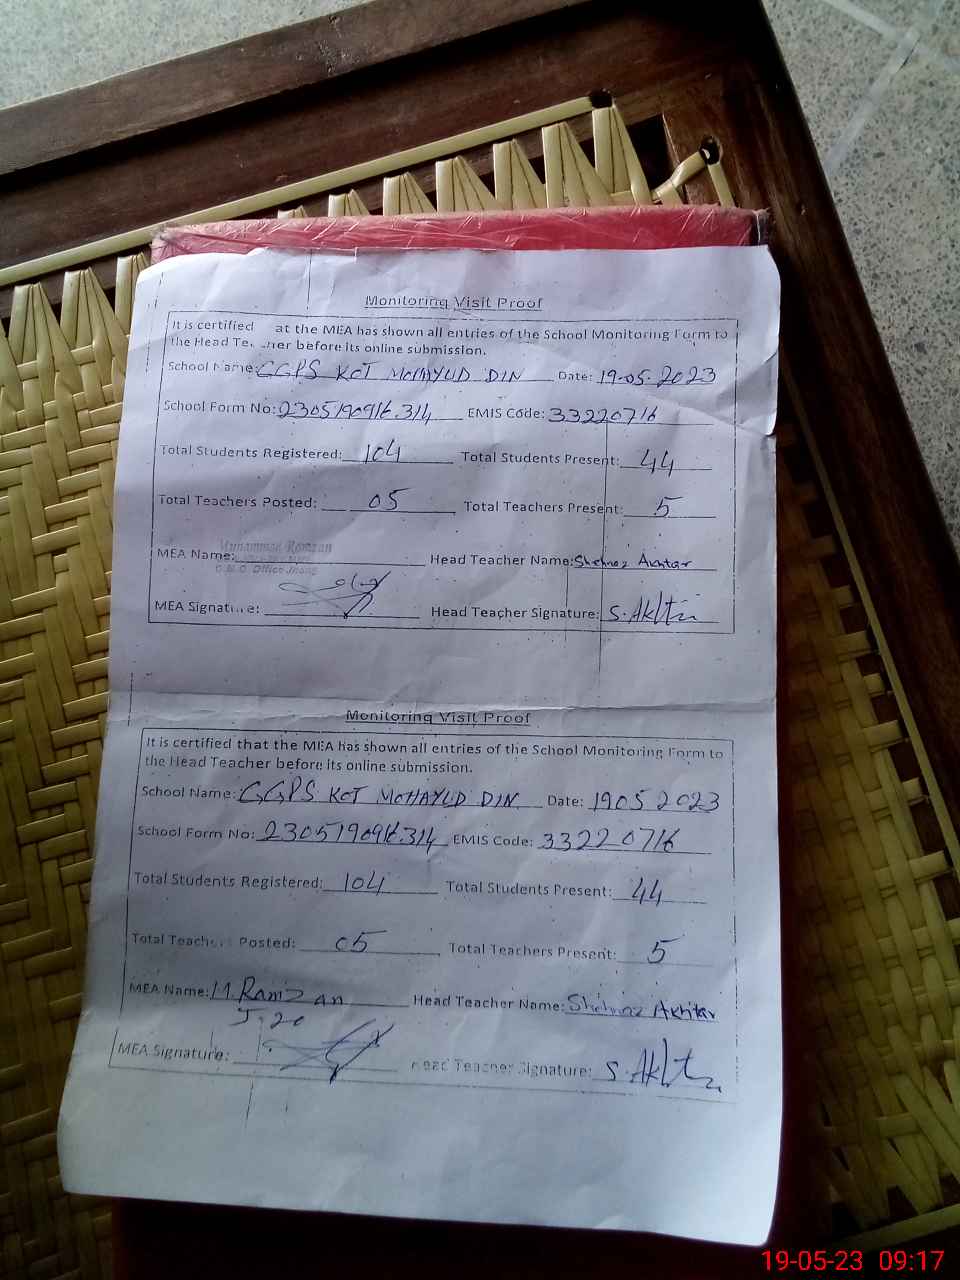 Monitoring Visit Proof
It is certified at the MEA has shown all entries of the School Monitoring Form to
the Head Teacher before its online submission.
School Name: GGPS KOT MOHAYUD DIN Date: 19-05-2023
School Form No: 2305190916314 EMIS Code: 33220716
Total Students Registered: 104 Total Students Present: 44
Total Teachers Posted: 05 Total Teachers Present: 5
Muhammad Ramzan
MEA Name: Head Teacher Name: Shehnaz Akhtar
Office Jhang
MEA Signature: Head Teacher Signature: S. Akhtar
Monitoring Visit Proof
It is certified that the MEA has shown all entries of the School Monitoring Form to
the Head Teacher before its online submission.
School Name: GGPS KOT MOHAYUD DIN Date: 19 05 2023
School Form No: 2305190916314 EMIS Code: 33220716
Total Students Registered: 104 Total Students Present: 44
Total Teachers Posted: 05 Total Teachers Present: 5
MEA Name: M. Ramzan Head Teacher Name: Shehnaz Akhtar
J-20
MEA Signature: Head Teacher Signature: S. Akhtar
19-05-23 09:17